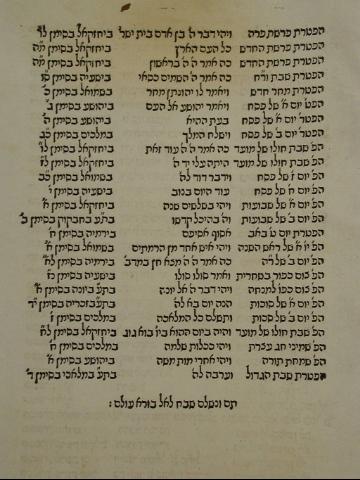 הפטרת פרשת פרה ויהי דבר ה' בן אדם בית ישר' ביחזקאל בסימן לו
הפטרת פרשת החדש כל העם הארץ ביחזקאל בסימן מה
הפטרת פרשת החדש כה אמר ה' ה' בראשון ביחזקאל בסימן מה
הפטרת שבת ור״ח כה אמר ה' השמים כסאי בישעיה בסימן סו
הפטרת מחר חדש ויאמר לו יהונתן מחר בשמואל בסימן כ'
הפט' יום א' של פסח ויאמר יהושע אל העם ביהושע בסימן ג'
הפטר' יום א' של פסח בעת ההיא ביהושע בסימן ה'
הפטר' יום ב' של פסח וישלח המלך במלכים בסימן כג
הפ' שבת חולו של מועד כה אמר ה' ה' עוד זאת ביחזקאל בסימן לו
הפ' שבת חולו של מועד היתה עלי יד ה' ביחזקאל בסימן לז
הפ' יום ז' של פסח וידבר דוד לה' בשמואל בסימן כב
הפ' יום ח' של פסח עוד היום בנוב בישעיה בסימן י'
הפ' יום א' של שבועות ויהי בשלשים שנה ביחזקאל בסימן א'
הפ' יום ב' של שבועות וה' בהיכל קדשו בת״ע בחבקוק בסימן ב'
הפטרת יום ט' באב אסוף אסיפם בירמיה בסימן ח'
הפ' יום א' של ראש השנה ויהי איש אחד מן הרמתים בשמואל בסימן א'
הפ' יום ב' של ר״ה כה אמר ה' מצא חן במדב' בירמיה בסימן לא
הפ' צום כפור בשחרית ואמר סולו סולו בישעיה בסימן נז
הפ' צום כפו' למנחה ויהי דבר ה' אל יונה בת״ע ביונה בסימן א'
הפ' יום א' של סוכות הנה יום בא לה' בת״ע בזכריה בסימן י״ד
הפ' יום ב' של סכות ותשלם כל המלאכה במלכים בסימן ז'
הפ' שבת חולו של מועד והיה ביום ההוא ביו' בוא גוג ביחזקאל בסימן לח
הפ' שמיני חג עצרת ויהי ככלות שלמה במלכים בסימן ח'
הפ' שמחת תורה ויהי אחרי מות משה ביהושע בסימן א'
הפטרת שבת הגדול וערבה לה' בת״ע במלאכי בסימן ג'
תם ונשלם שבח לאל בורא עולם :